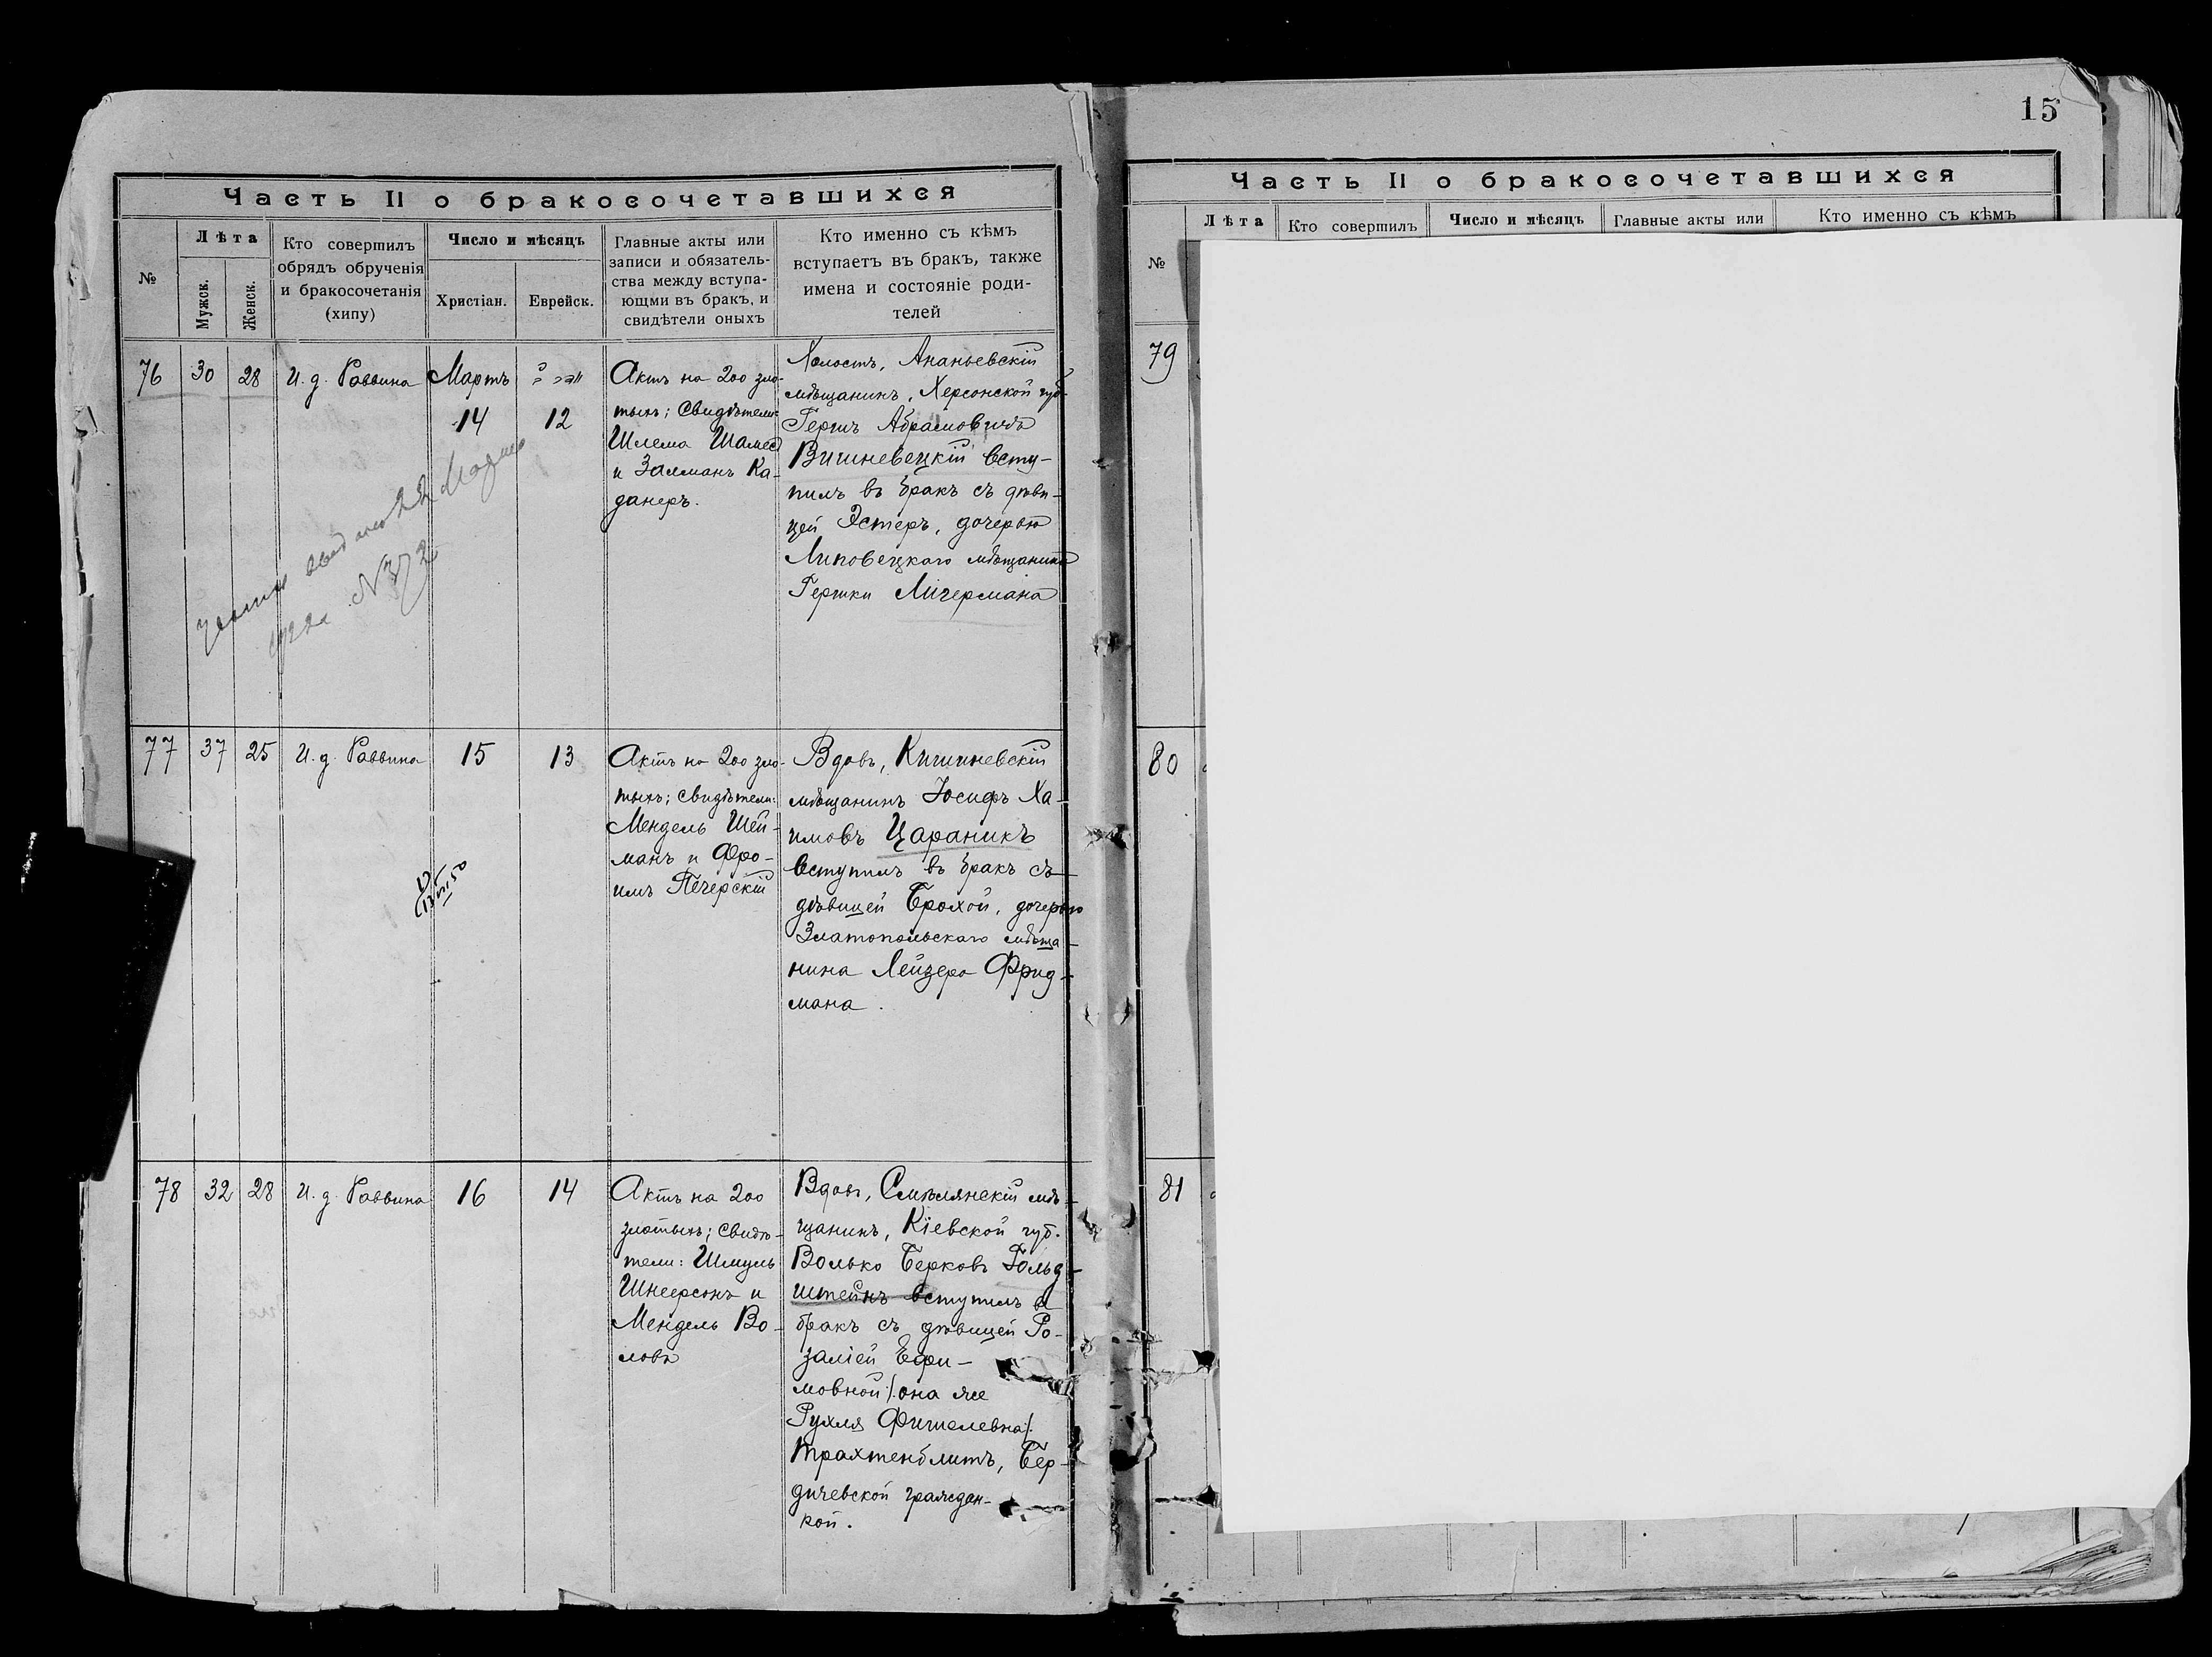 15
Часть II о бракосочетавшихся
№
Лѣта
Мужск.
Женск.
Кто совершилъ
обрядъ обрученія
и бракосочетанія
(хипу)
Число и мѣсяцъ
Христіан.
Еврейск.
Главные акты или
записи и обязатель-
ства между вступа-
ющми въ бракъ, и
свидѣтели оныхъ
Кто именно съ кѣмъ
вступаетъ въ бракъ, также
имена и состояніе роди-
телей
76
30
28
И. д. Раввина
Мартъ
14
12
Актъ на 200 зло-
тыхъ; Свидѣтели:
Шлема Шамес
и Залманъ Ка-
данеръ.
Холостъ, Ананьевскій
мѣщанинъ, Херсонской губ.
Гершъ Абрамовичъ
Вишневецкій всту-
пилъ въ бракъ съ дѣви-
цей Эстеръ, дочерью
Липовецкаго мѣщанина
Гершки Личермана
22 Марта
1922
77
37
25
И. д. Раввина
15
13
Актъ на 200 зло-
тыхъ; свидѣтели:
Мендель Шей-
манъ и Фро-
имъ Печерскій
Вдовъ, Кишиневскій
мѣщанинъ Іосифъ Ха-
имовъ Цараникъ
вступилъ въ бракъ съ
дѣвицей Брохой, дочерью
Златопольскаго мѣща-
нина Лейзера Фрид-
мана.
78
32
28
И. д. Раввина
16
14
Актъ на 200
злотыхъ; Свидѣ-
тели: Шмуль
Шнеерсонъ и
Мендель Во-
ловъ
Вдовъ, Смѣлянскій мѣ-
щанинъ, Кіевской губ.
Волько Берковъ Гольд-
штейнъ вступилъ въ
бракъ съ дѣвицей Ро-
заліей Ефи-
мовной /она же
Рухля Фишелевна/.
Трахтенблитъ, Бер-
дичевской граждан-
кой.
Часть II о бракосочетавшихся
№
Лѣта
Кто совершилъ
Число и мѣсяцъ
Главные акты или
Кто именно съ кѣмъ
79
80
81